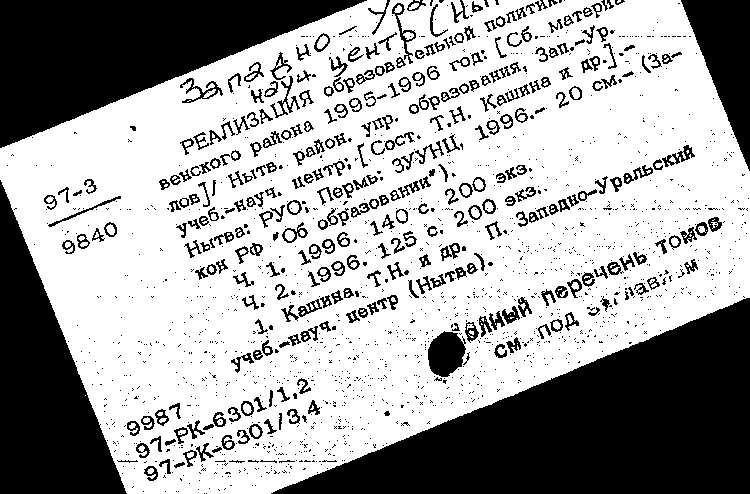 Западно-Ура
науч. центр (Ны
РЕАЛИЗАЦИЯ образовательной политики
венского района 1995-1996 год: [Сб. материа-
лов]/ Нытв. район. упр. образования, Зап.-Ур.
учеб.-науч. центр; [Сост. Т.Н. Кашина и др.].-
Нытва: РУО; Пермь: ЗУУНЦ, 1996.- 20 см.- (За-
кон РФ "Об образовании").
Ч. 1. 1996. 140 с. 200 экз.
Ч. 2. 1996. 125 с. 200 экз.
1. Кашина, Т.Н. и др. П. Западно-Уральский
учеб.-науч. центр (Нытва).
97-3
9840
олный перечень томов
см. под
9987
97-РК-6301/1,2
97-РК-6301/3,4